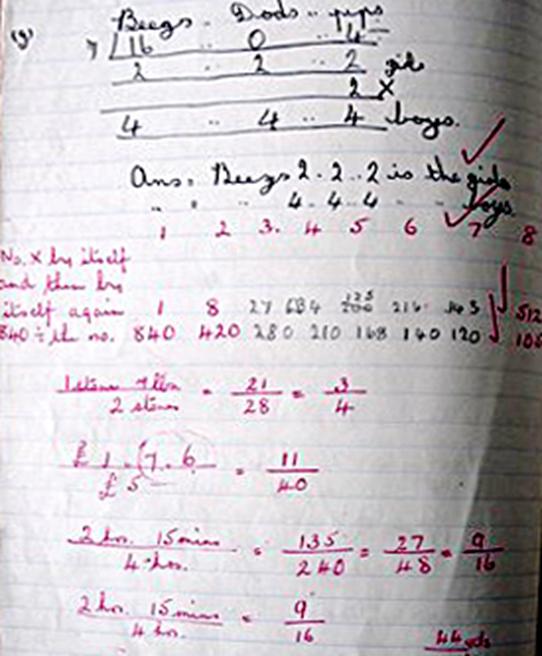 (9) Beezs .. Dods .. pips
7 | 16 .. 0 .. 4
2 .. 2 .. 2 girls
2 x
4 .. 4 .. 4 boys.
Ans. Beezs 2 . 2 . 2 is the girls
" " " 4 . 4 . 4 " " boys
1 2 3. 4 5 6 7 8
No. x by itself
and then by
itself again 1 8 27 64 125 216 343 512
840 ÷ the no. 840 420 280 210 168 140 120 105
1 stone 7 lbs / 2 stones = 21/28 = 3/4
£1.(7.6 / £5 = 11/40
2 hrs. 15 mins / 4 hrs. = 135/240 = 27/48 = 9/16
2 hrs. 15 mins / 4 hrs. = 9/16
44 yds